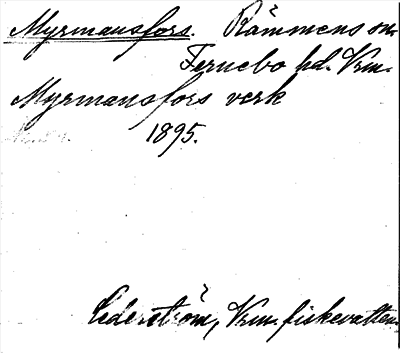 Myrmansfors. Rämmens sn.
Fernebo hd. Vrm.
Myrmansfors verk
1895.
Cederström, Vrm. fiskevatten.